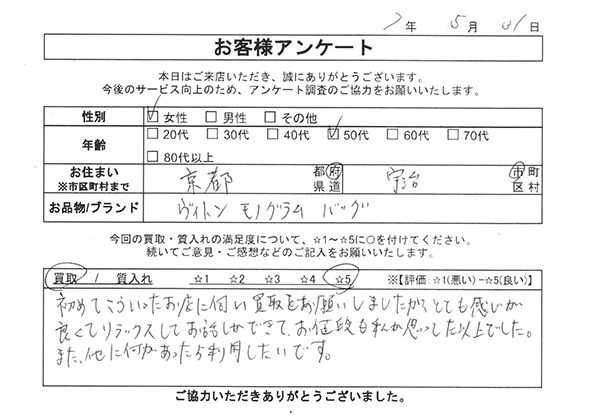 7年 5月 31日
お客様アンケート
本日はご来店いただき、誠にありがとうございます。
今後のサービス向上のため、アンケート調査のご協力をお願いいたします。
性別 ☑女性 □男性 □その他
年齢 □20代 □30代 □40代 ☑50代 □60代 □70代
□80代以上
お住まい ※市区町村まで 京都 都府県道 宇治 市町区村
お品物/ブランド ヴィトン モノグラム バッグ
今回の買取・質入れの満足度について、☆1～☆5に○を付けてください。
続いてご意見・ご感想などのご記入をお願いいたします。
買取 / 質入れ ☆1 ☆2 ☆3 ☆4 ☆5 ※【評価:☆1(悪い)－☆5(良い)】
初めてこういったお店に伺い買取をお願いしましたが、とても感じが
良くてリラックスしてお話しができて、お値段も私が思ってた以上でした。
また、他に何かあったら利用したいです。
ご協力いただきありがとうございました。